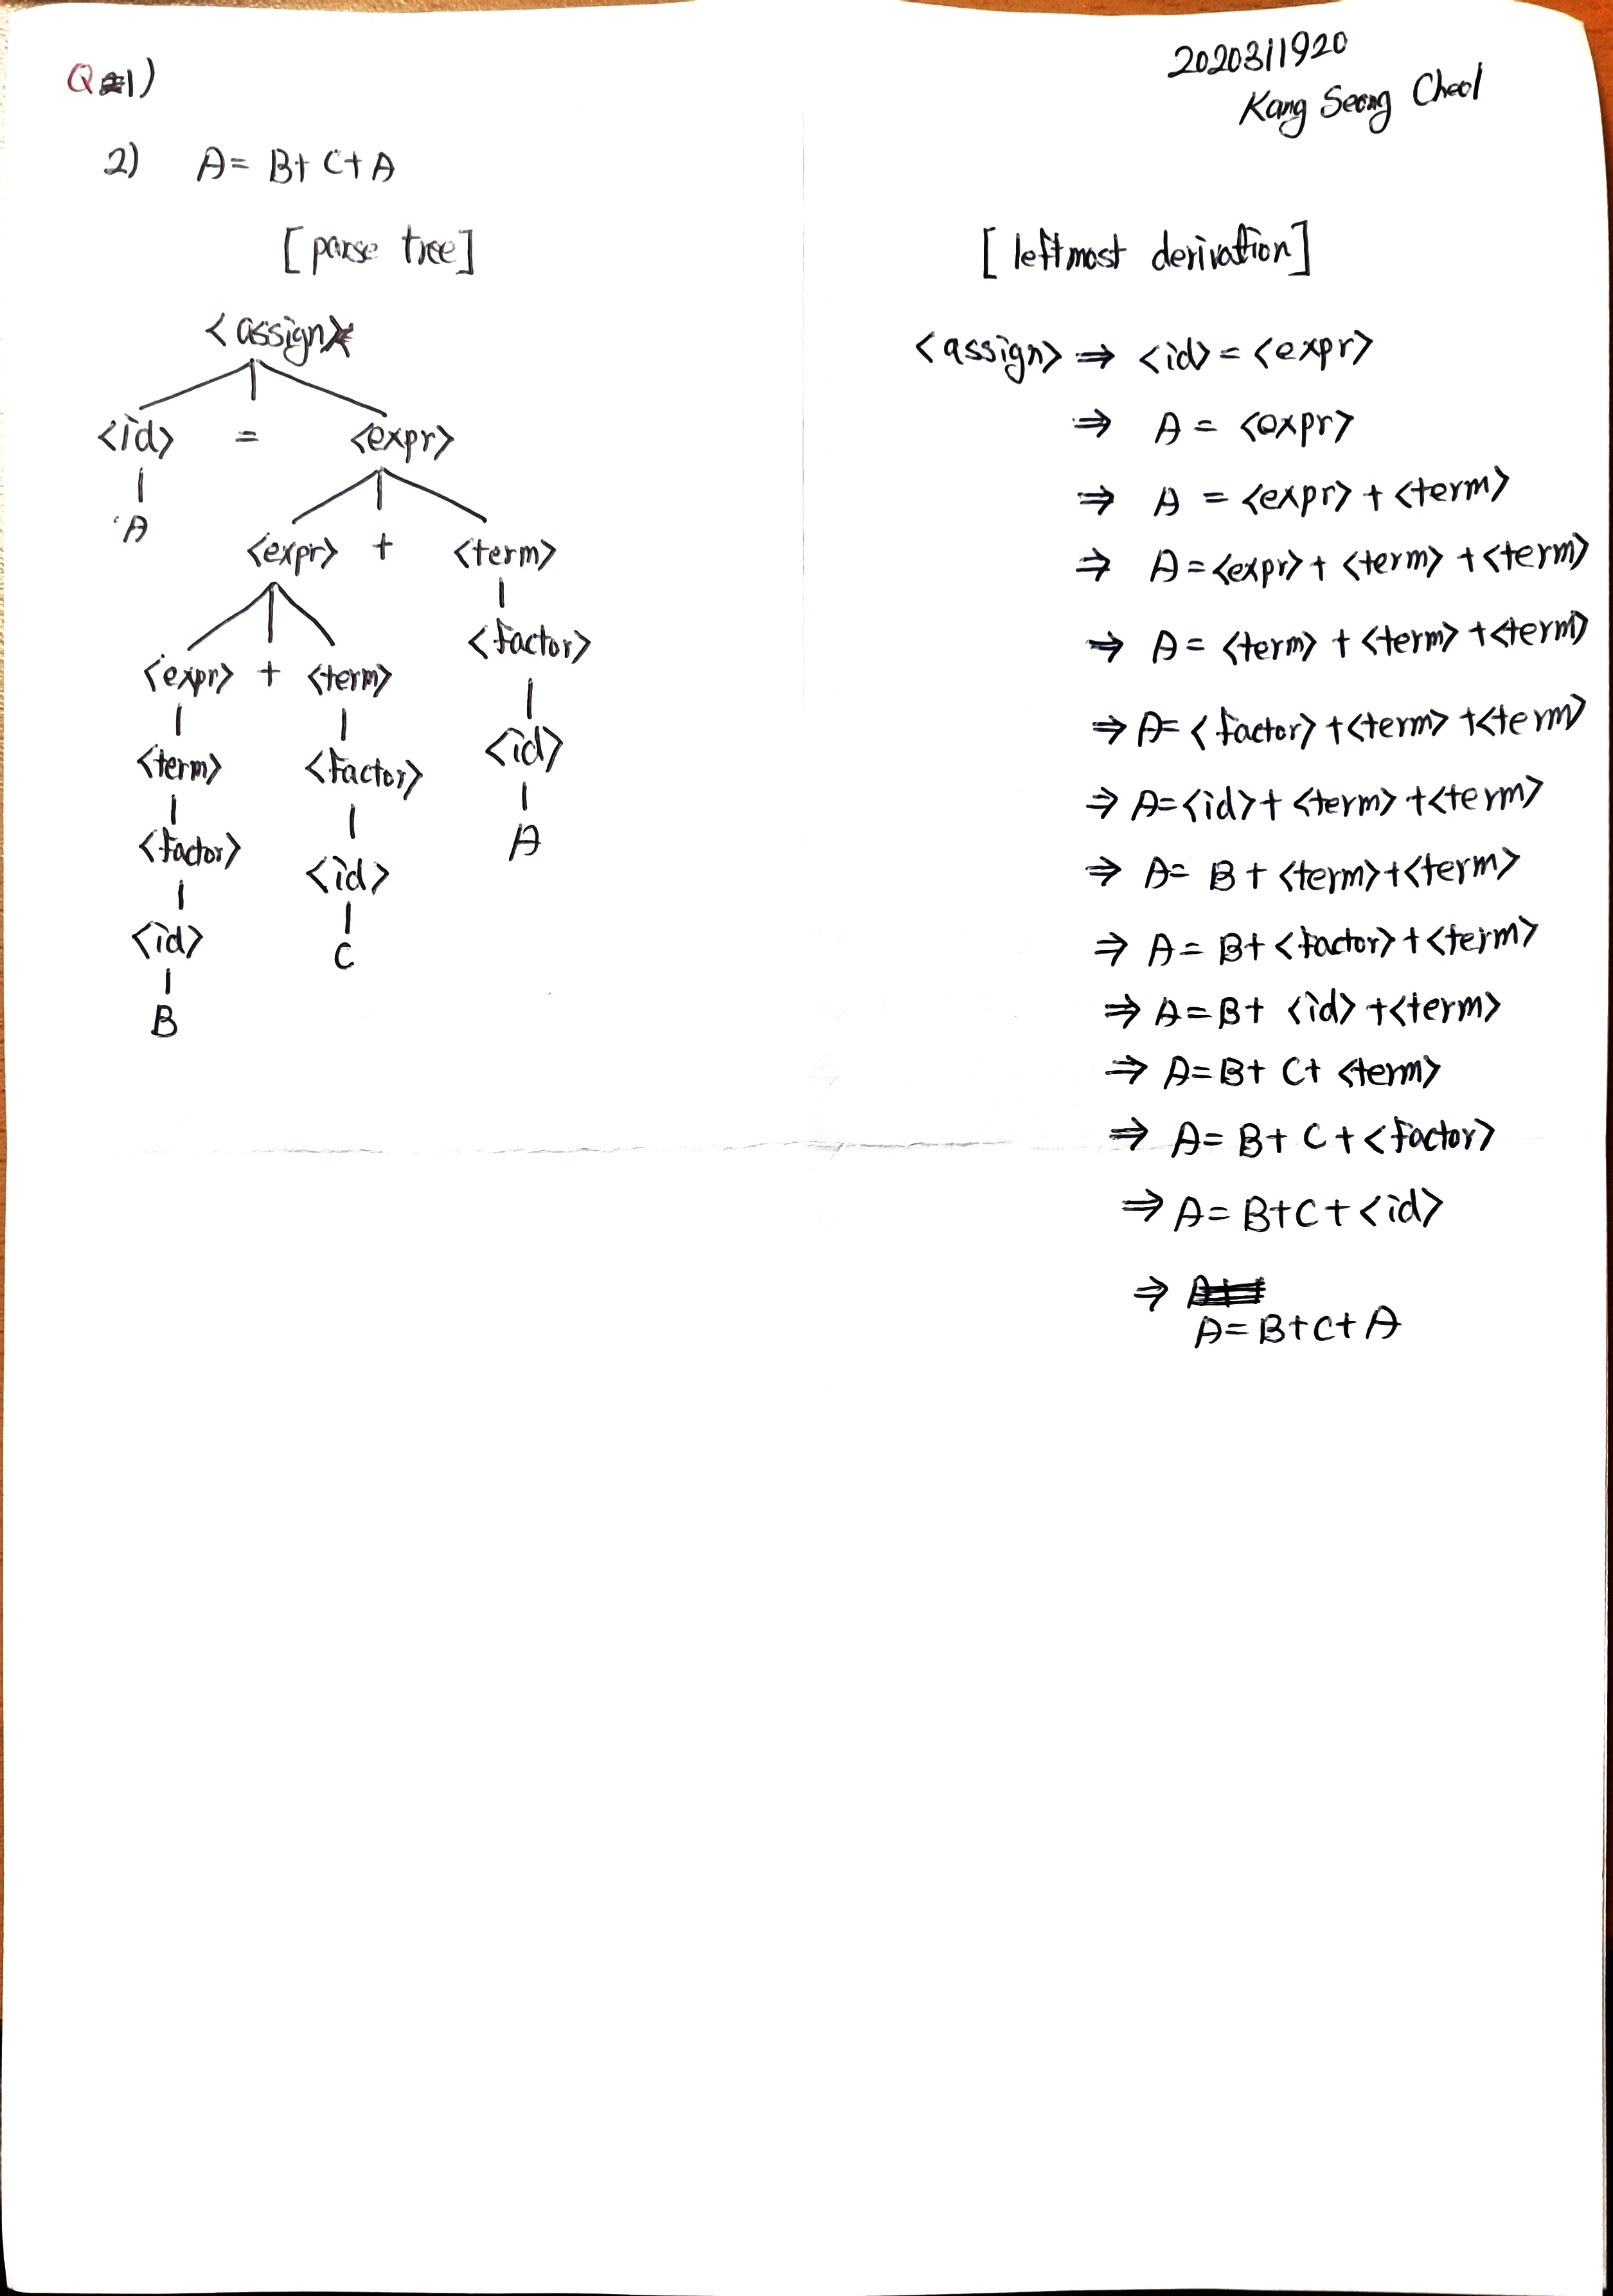 Q 1)
2020311920
Kang Seong Cheol
2) A= B+ C+ A
[parse tree]
<assign>
<id> = <expr>
A
<expr> + <term>
<factor>
<expr> + <term>
<id>
<term> <factor>
A
<factor>
<id>
<id>
C
B
[leftmost derivattion]
<assign> ⇒ <id> = <expr>
⇒ A = <expr>
⇒ A = <expr> + <term>
⇒ A = <expr> + <term> + <term>
⇒ A = <term> + <term> + <term>
⇒ A= <factor> + <term> + <term>
⇒ A = <id> + <term> + <term>
⇒ A= B + <term> + <term>
⇒ A = B+ <factor> + <term>
⇒ A = B+ <id> + <term>
⇒ A=B+ C+ <term>
⇒ A= B+ C + <factor>
⇒ A= B+C + <id>
⇒
A= B+C+ A